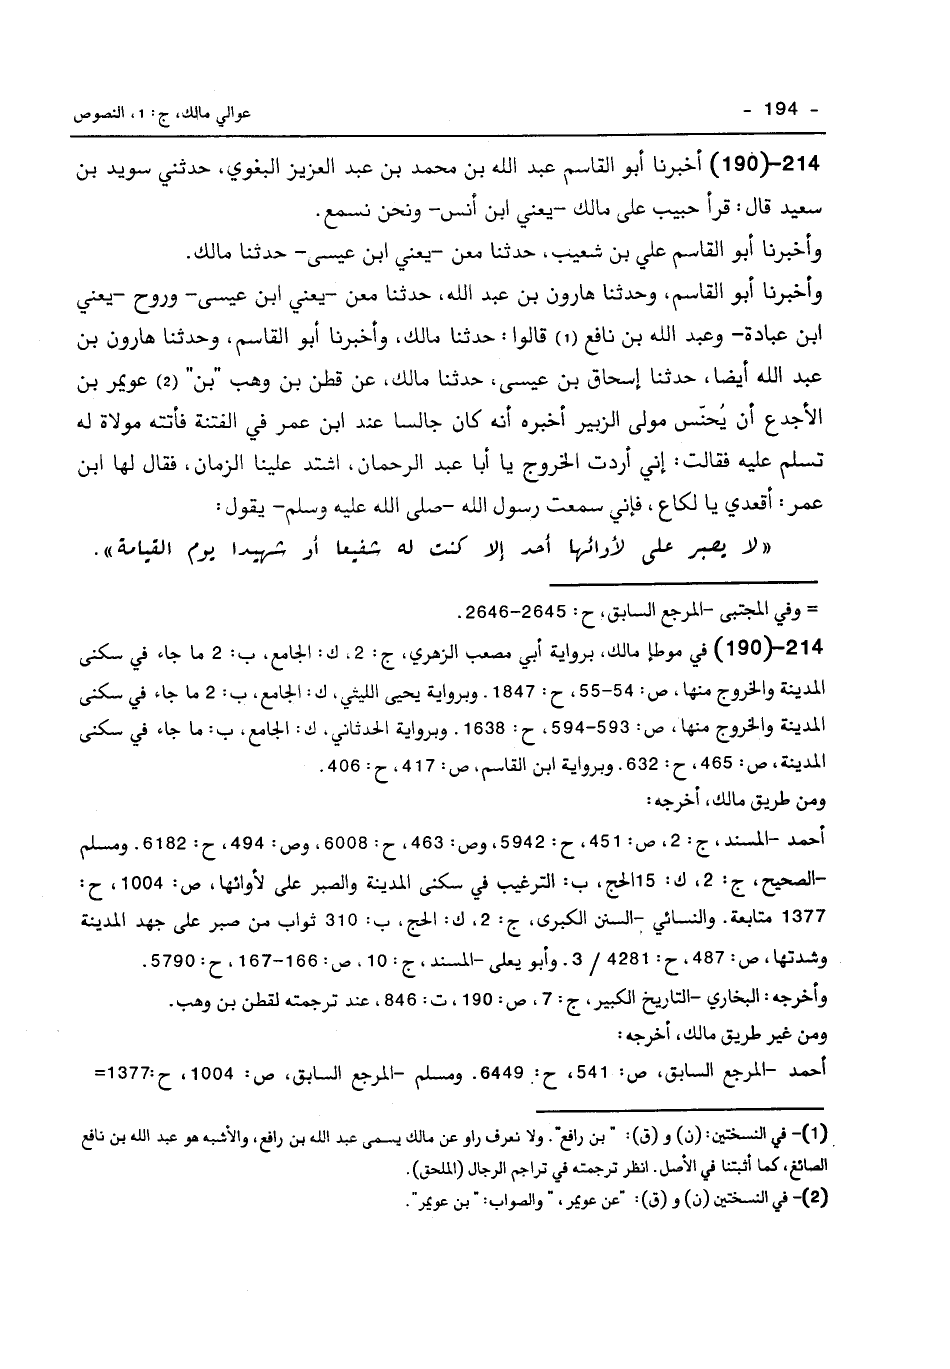 - 194 -
عوالي مالك، ج: 1، النصوص
214-(190) أخبرنا أبو القاسم عبد الله بن محمد بن عبد العزيز البغوي، حدثني سويد بن
سعيد قال: قرأ حبيب على مالك -يعني ابن أنس- ونحن نسمع.
وأخبرنا أبو القاسم علي بن شعيب، حدثنا معن -يعني ابن عيسى- حدثنا مالك.
وأخبرنا أبو القاسم، وحدثنا هارون بن عبد الله، حدثنا معن -يعني ابن عيسى- وروح -يعني
ابن عبادة- وعبد الله بن نافع (1) قالوا: حدثنا مالك، وأخبرنا أبو القاسم، وحدثنا هارون بن
عبد الله أيضا، حدثنا إسحاق بن عيسى، حدثنا مالك، عن قطن بن وهب "بن" (2) عويمر بن
الأجدع أن يُحنّس مولى الزبير أخبره أنه كان جالسا عند ابن عمر في الفتنة فأتته مولاة له
تسلم عليه فقالت: إني أردت الخروج يا أبا عبد الرحمان، اشتد علينا الزمان، فقال لها ابن
عمر: أقعدي يا لكاع، فإني سمعت رسول الله -صلى الله عليه وسلم- يقول:
«لا يصبر على لأوائها أحد إلا كنت له شفيعا أو شهيدا يوم القيامة».
= وفي المجتبى -المرجع السابق، ح: 2645-2646.
214-(190) في موطإ مالك، برواية أبي مصعب الزهري، ج: 2، ك: الجامع، ب: 2 ما جاء في سكنى
المدينة والخروج منها، ص: 54-55، ح: 1847. وبرواية يحيى الليثي، ك: الجامع، ب: 2 ما جاء في سكنى
المدينة والخروج منها، ص: 593-594، ح: 1638. وبرواية الحدثاني، ك: الجامع، ب: ما جاء في سكنى
المدينة، ص: 465، ح: 632. وبرواية ابن القاسم، ص: 417، ح: 406.
ومن طريق مالك، أخرجه:
أحمد -المسند، ج: 2، ص: 451، ح: 5942، وص: 463، ح: 6008، وص: 494، ح: 6182. ومسلم
-الصحيح، ج: 2، ك: 15الحج، ب: الترغيب في سكنى المدينة والصبر على لأوائها، ص: 1004، ح:
1377 متابعة. والنسائي -السنن الكبرى، ج: 2، ك: الحج، ب: 310 ثواب من صبر على جهد المدينة
وشدتها، ص: 487، ح: 4281 / 3. وأبو يعلى -المسند، ج: 10، ص: 166-167، ح: 5790.
وأخرجه: البخاري -التاريخ الكبير، ج: 7، ص: 190، ت: 846، عند ترجمته لقطن بن وهب.
ومن غير طريق مالك، أخرجه:
أحمد -المرجع السابق، ص: 541، ح: 6449. ومسلم -المرجع السابق، ص: 1004، ح:1377=
(1)- في النسختين: (ن) و (ق): "بن رافع". ولا نعرف راو عن مالك يسمى عبد الله بن رافع، والأشبه هو عبد الله بن نافع
الصائغ، كما أثبتنا في الأصل. انظر ترجمته في تراجم الرجال (الملحق).
(2)- في النسختين (ن) و (ق): "عن عويمر، " والصواب: "بن عويمر".